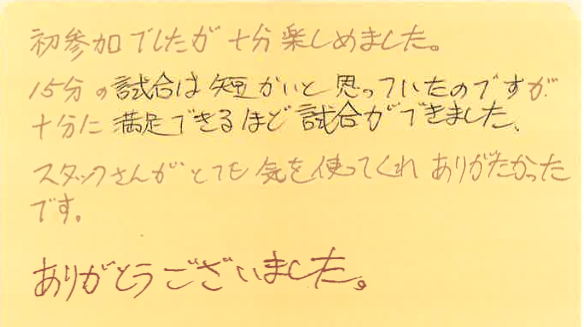 初参加でしたが十分楽しめました。
15分の試合は短かいと思っていたのですが
十分に満足できるほど試合ができました、
スタッフさんがとても気を使ってくれありがたかった
です。
ありがとうございました。